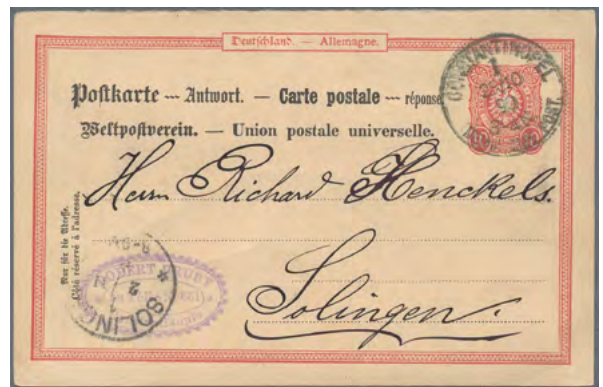 Deutschland. — Allemagne.
Postkarte — Antwort. — Carte postale — réponse
Weltpostverein. — Union postale universelle.
CONSTANTINOPEL
1
POST.
Herrn Richard Henckels.
Nur für die Adresse.
Côté réservé à l'adresse.
ROBERT
SOLIN
Solingen.